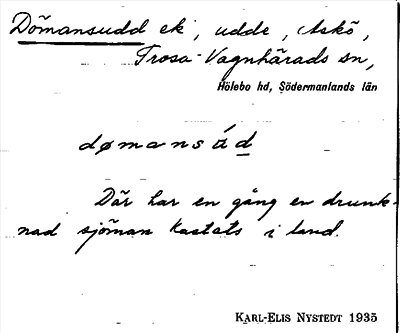 Dömansudd ek, udde, Askö,
Trosa-Vagnhärads sn,
Hölebo hd, Södermanlands län
dømansúd
Där har en gång en drunk-
nad sjöman kastats i land.
KARL-ELIS NYSTEDT 1935